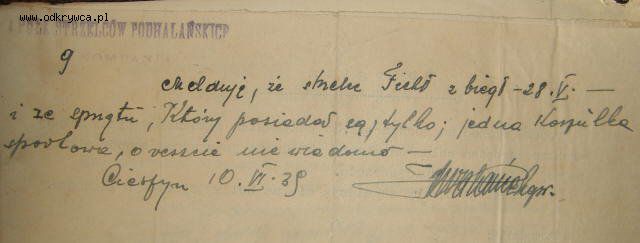 www.odkrywca.pl
PUŁK STRZELCÓW PODHALAŃSKICH
9
Melduję, że strzelec Fiehl zbiegł 28.V. —
i ze sprzętu, który posiadał są tylko; jedna koszulka
sportowa, o reszcie nie wiadomo —
Cieszyn 10.VI.39